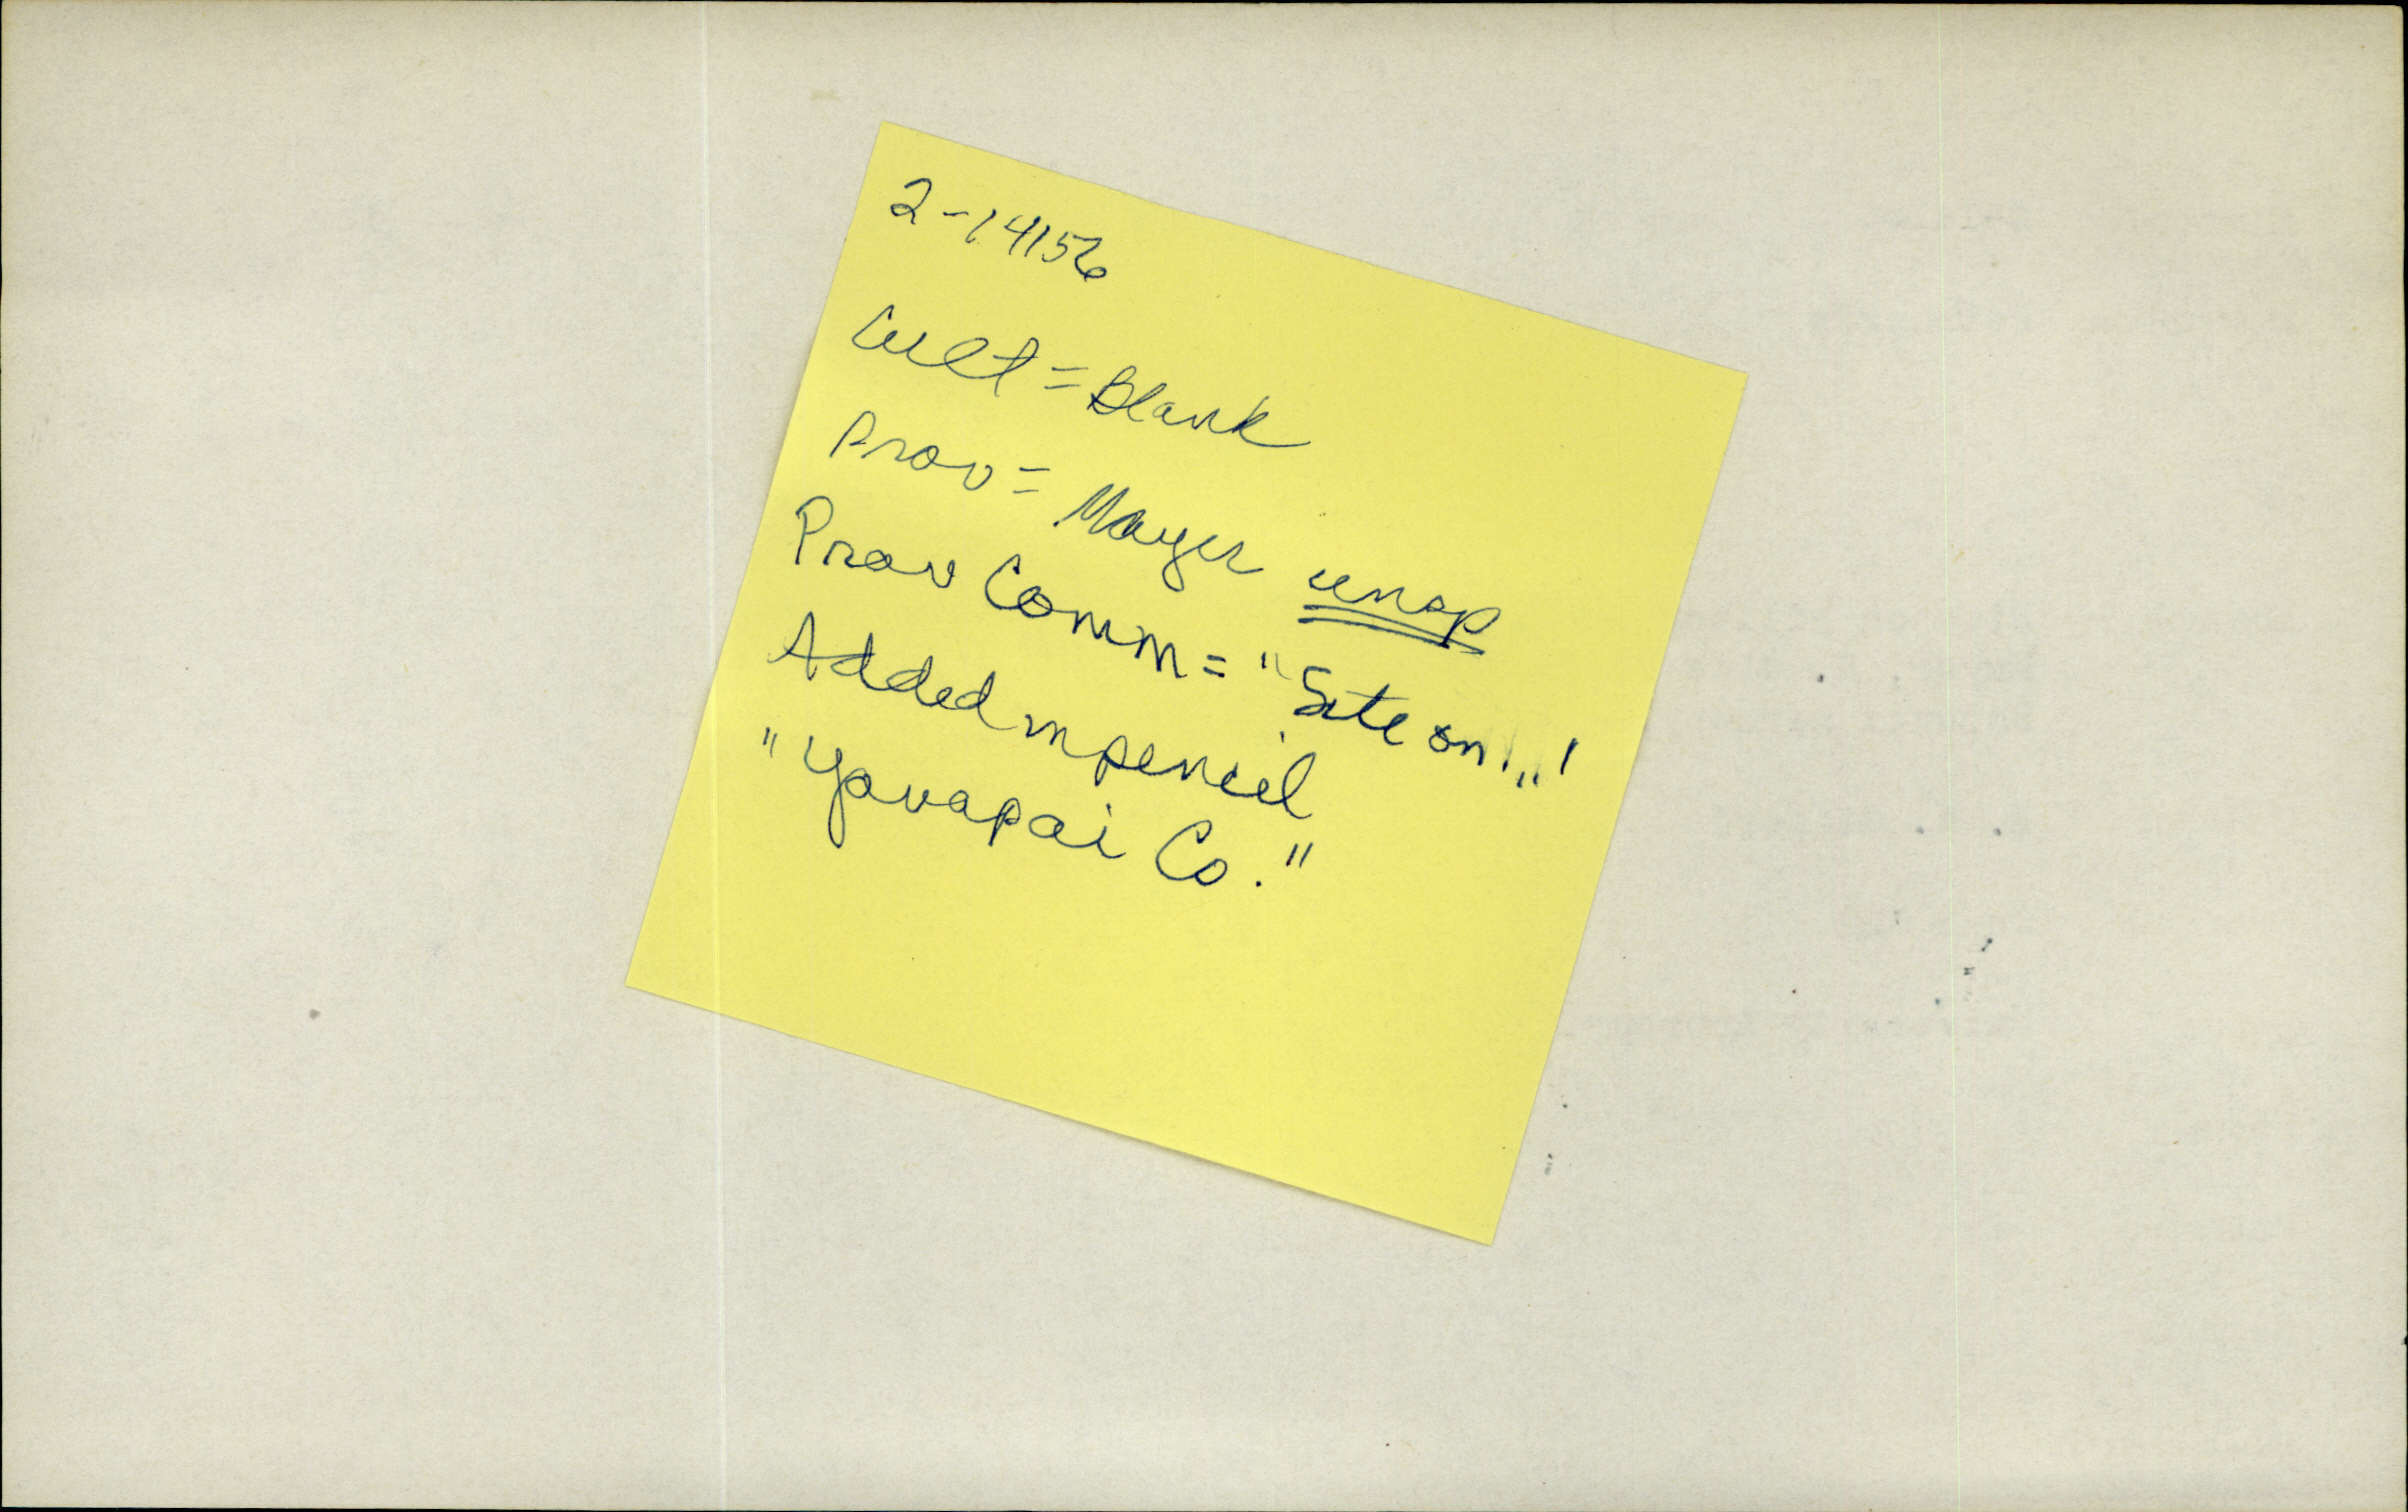 2-14156
Cult = Blank
Prov = Mayer unsp
Prov Comm = "Site on..."
Added in pencil
"Yavapai Co."